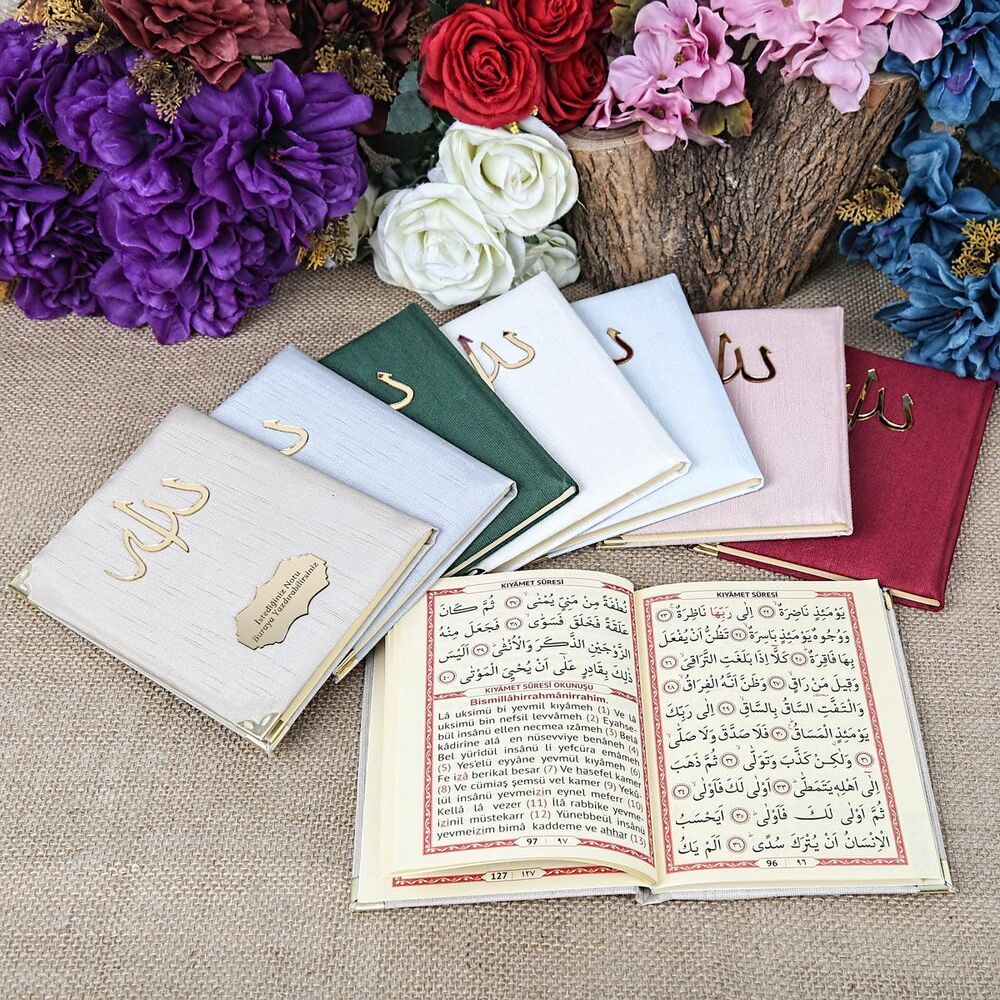 İstediğiniz Notu
Buraya Yazdırabilirsiniz
KIYÂMET SÛRESİ
يَوْمَئِذٍ نَاضِرَةٌ ﴿٢٢﴾ اِلٰى رَبِّهَا نَاظِرَةٌ ﴿٢٣﴾
وَوُجُوهٌ يَوْمَئِذٍ بَاسِرَةٌ ﴿٢٤﴾ تَظُنُّ اَنْ يُفْعَلَ
بِهَا فَاقِرَةٌ ﴿٢٥﴾ كَلَّا اِذَا بَلَغَتِ التَّرَاقِيَ ﴿٢٦﴾
وَقِيلَ مَنْ رَاقٍ ﴿٢٧﴾ وَظَنَّ اَنَّهُ الْفِرَاقُ ﴿٢٨﴾
وَالْتَفَّتِ السَّاقُ بِالسَّاقِ ﴿٢٩﴾ اِلٰى رَبِّكَ
يَوْمَئِذٍ الْمَسَاقُ ﴿٣٠﴾ فَلَا صَدَّقَ وَلَا صَلّٰى
﴿٣١﴾ وَلٰكِنْ كَذَّبَ وَتَوَلّٰى ﴿٣٢﴾ ثُمَّ ذَهَبَ
اِلٰى اَهْلِهِ يَتَمَطّٰى ﴿٣٣﴾ اَوْلٰى لَكَ فَاَوْلٰى ﴿٣٤﴾
ثُمَّ اَوْلٰى لَكَ فَاَوْلٰى ﴿٣٥﴾ اَيَحْسَبُ
الْاِنْسَانُ اَنْ يُتْرَكَ سُدًى ﴿٣٦﴾ اَلَمْ يَكُ
96 | ٩٦
KIYÂMET SÛRESİ
نُطْفَةً مِنْ مَنِيٍّ يُمْنٰى ﴿٣٧﴾ ثُمَّ كَانَ
عَلَقَةً فَخَلَقَ فَسَوّٰى ﴿٣٨﴾ فَجَعَلَ مِنْهُ
الزَّوْجَيْنِ الذَّكَرَ وَالْاُنْثٰى ﴿٣٩﴾ اَلَيْسَ
ذٰلِكَ بِقَادِرٍ عَلٰى اَنْ يُحْيِيَ الْمَوْتٰى ﴿٤٠﴾
KIYÂMET SÛRESİ OKUNUŞU
Bismillâhirrahmânirrahîm.
Lâ uksimü bi yevmil kıyâmeh (1) Ve lâ
uksimü bin nefsil levvâmeh (2) Eyahse-
bül insânü ellen necmea ızâmeh (3) Belâ
kâdirîne alâ en nüsevviye benâneh (4)
Bel yürîdül insânü li yefcüra emâmeh
(5) Yes'elü eyyâne yevmül kıyâmeh (6)
Fe izâ berikal besar (7) Ve hasefel kamer
(8) Ve cümiaş şemsü vel kamer (9) Yekû-
lül insânü yevmeizin eynel meferr (10)
Kellâ lâ vezer (11) İlâ rabbike yevme-
izinil müstekarr (12) Yünebbeül insânü
yevmeizim bimâ kaddeme ve ahhar (13)
97 | ٩٧
127 | ١٢٧
الله